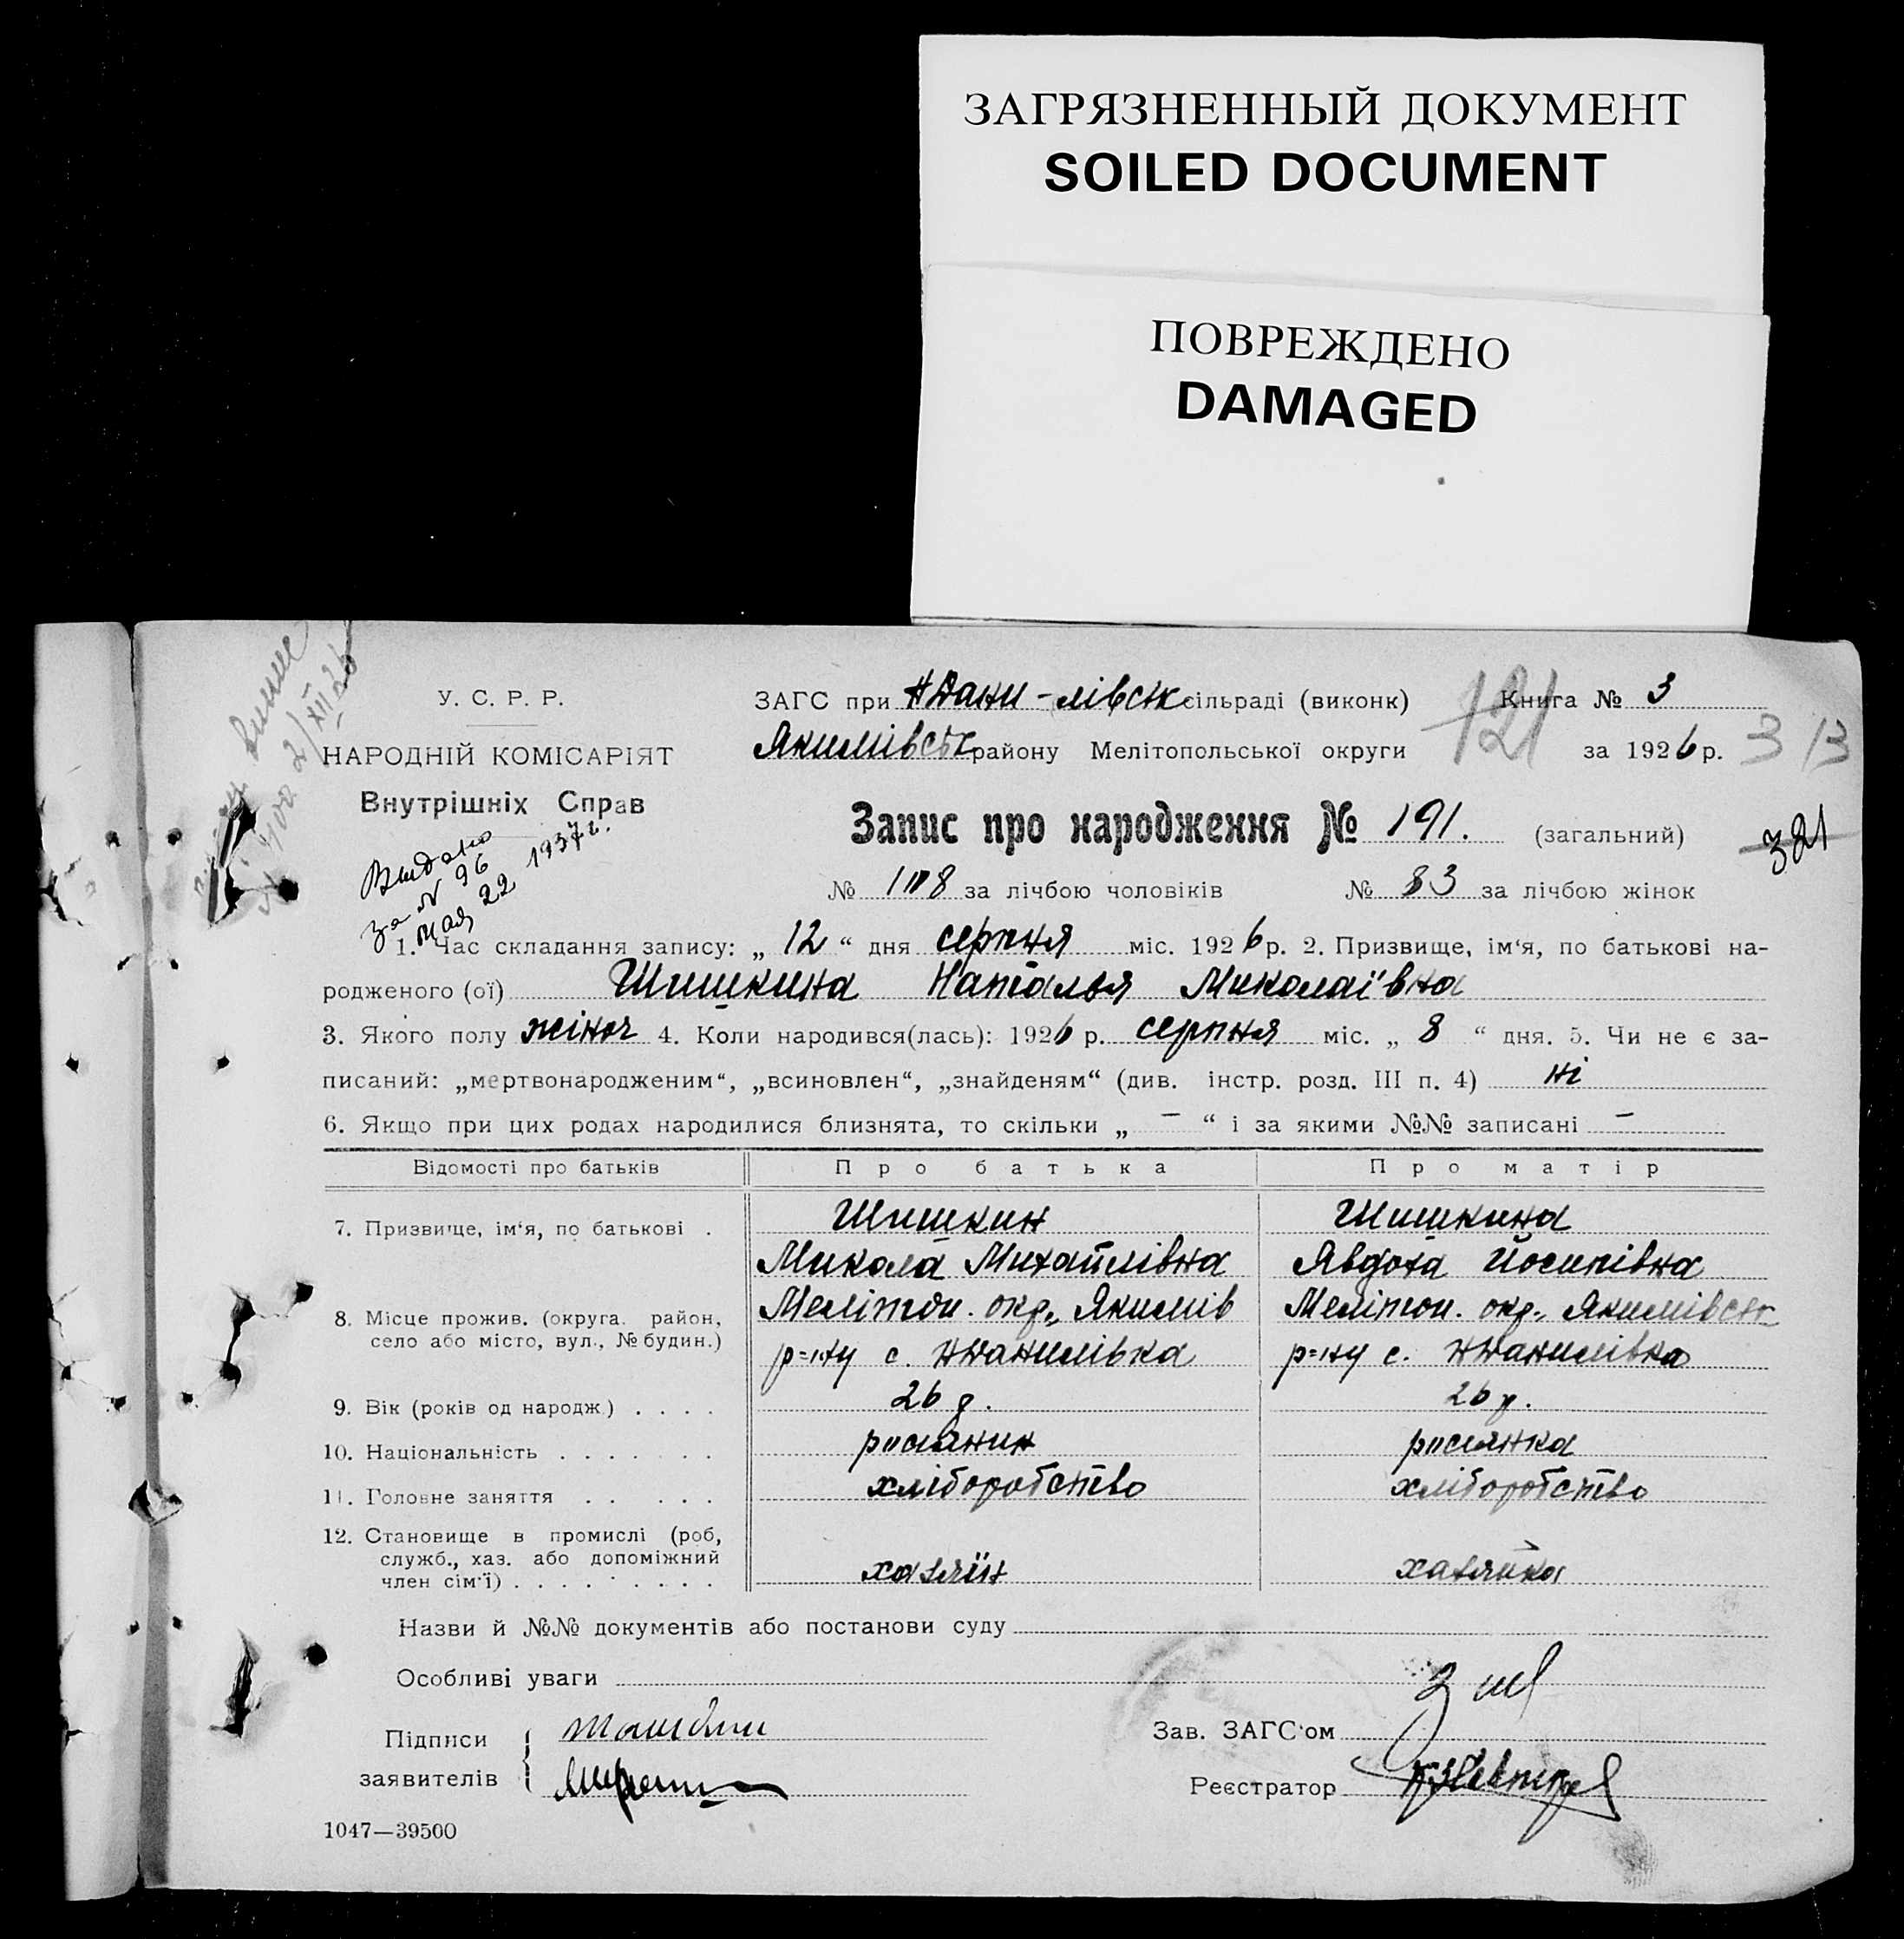 ЗАГРЯЗНЕННЫЙ ДОКУМЕНТ
SOILED DOCUMENT
ПОВРЕЖДЕНО
DAMAGED
У. С. Р. Р.
НАРОДНІЙ КОМІСАРІЯТ
Внутрішніх Справ
Выдано
за N 96
мая 22 1937г.
ЗАГС при НДани-лівськ сільраді (виконк)
Книга № 3
Якимівськ району Мелітопольської округи
за 1926 р.
121
313
321
Запис про народження № 191. (загальний)
№ 108 за лічбою чоловіків № 83 за лічбою жінок
1. Час складання запису: „ 12 “ дня серпня міс. 1926 р. 2. Призвище, ім‘я, по батькові на-
родженого (ої) Шишкина Наталья Миколаївна
3. Якого полу жіноч 4. Коли народився(лась): 1926 р. серпня міс. „ 8 “ дня. 5. Чи не є за-
писаний: „мертвонародженим“, „всиновлен“, „знайденям“ (див. інстр. розд. III п. 4) ні
6. Якщо при цих родах народилися близнята, то скільки „ – “ і за якими №№ записані –
Відомості про батьків Про батька Про матір
7. Призвище, ім‘я, по батькові . Шишкин Шишкина
Микола Михайлівна Явдоха Йосипівна
8. Місце прожив. (округа. район, Мелітоп. окр., Якимів Мелітоп. окр., Якимівськ
село або місто, вул., № будин.) р=ну с. НДанилівка р=ну с. НДанилівка
9. Вік (років од народж.) . . . . 26 р. 26 р.
10. Національність . . . . . . . росіянин росіянка
11. Головне заняття . . . . . хліборобство хліборобство
12. Становище в промислі (роб,
служб., хаз. або допоміжний
член сім‘ї) . . . . . . . . . хазяїн хазяйка
Назви й №№ документів або постанови суду
Особливі уваги
Підписи
заявителів
Зав. ЗАГС‘ом
Реєстратор
1047—39500